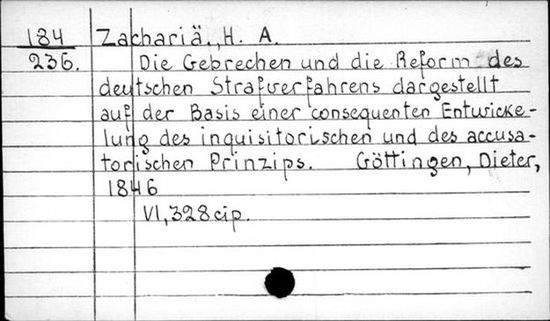 184 Zachariä., H. A.
236. Die Gebrechen und die Reform des
deutschen Strafverfahrens dargestellt
auf der Basis einer consequenten Entwicke-
lung des inquisitorischen und des accusa-
torischen Prinzips. Göttingen, Dieter,
1846
VI, 328 cip.